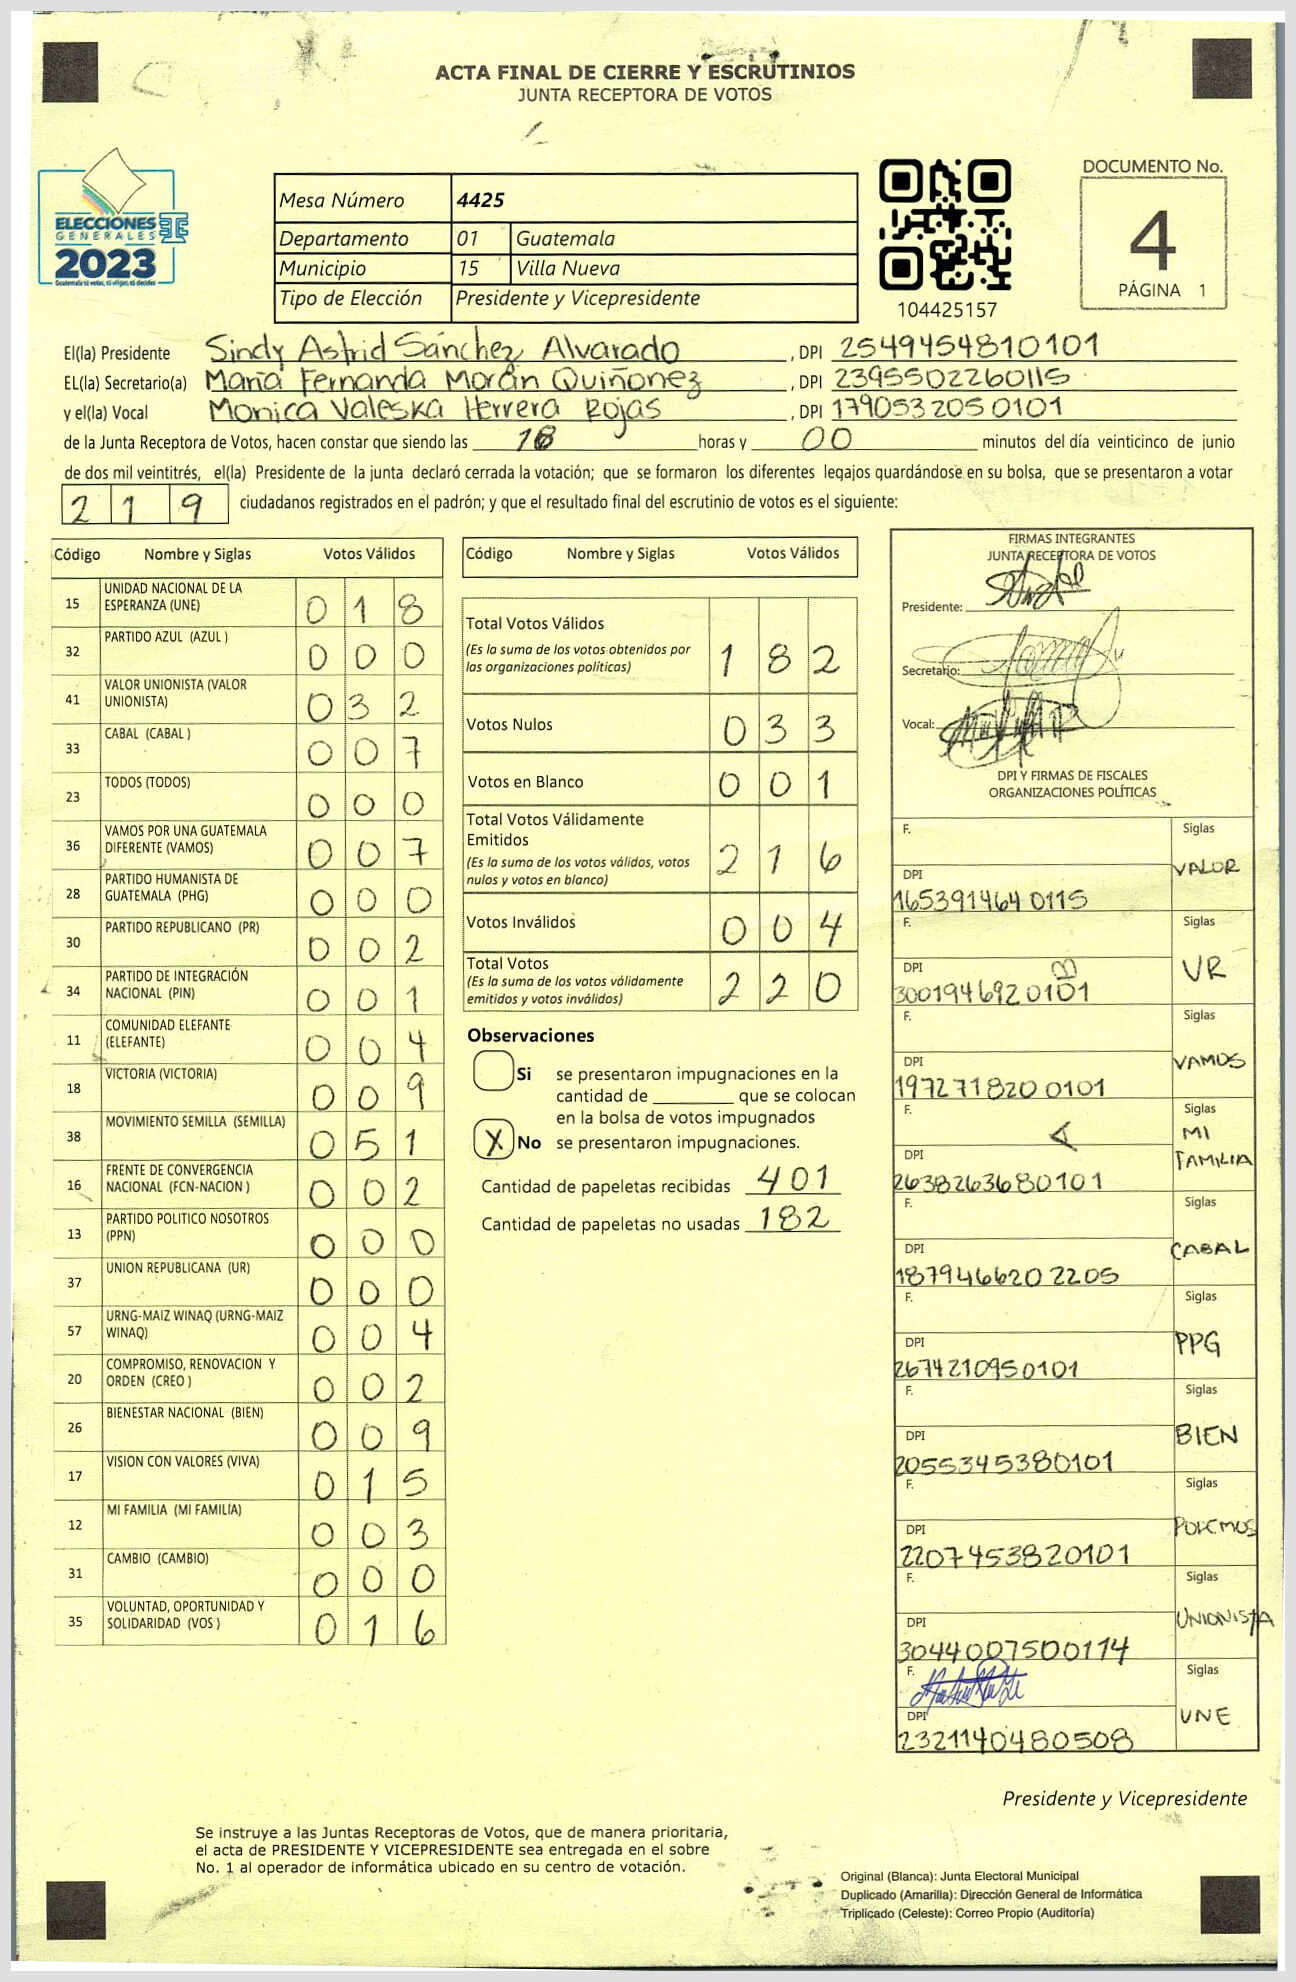 ACTA FINAL DE CIERRE Y ESCRUTINIOS
JUNTA RECEPTORA DE VOTOS
ELECCIONES
GENERALES
2023
Guatemala tú votas, tú eliges, tú decides
Mesa Número 4425
Departamento 01 Guatemala
Municipio 15 Villa Nueva
Tipo de Elección Presidente y Vicepresidente
104425157
DOCUMENTO No.
4
PÁGINA 1
El(la) Presidente Sindy Astrid Sánchez Alvarado, DPI 2549454810101
EL(la) Secretario(a) María Fernanda Morán Quiñonez, DPI 2395502260115
y el(la) Vocal Monica Valeska Herrera Rojas, DPI 1790532050101
de la Junta Receptora de Votos, hacen constar que siendo las 18 horas y 00 minutos del día veinticinco de junio
de dos mil veintitrés, el(la) Presidente de la junta declaró cerrada la votación; que se formaron los diferentes legajos guardándose en su bolsa, que se presentaron a votar
219 ciudadanos registrados en el padrón; y que el resultado final del escrutinio de votos es el siguiente:
Código Nombre y Siglas Votos Válidos
15 UNIDAD NACIONAL DE LA
ESPERANZA (UNE) 0 1 8
32 PARTIDO AZUL (AZUL ) 0 0 0
41 VALOR UNIONISTA (VALOR
UNIONISTA) 0 3 2
33 CABAL (CABAL ) 0 0 7
23 TODOS (TODOS) 0 0 0
36 VAMOS POR UNA GUATEMALA
DIFERENTE (VAMOS) 0 0 7
28 PARTIDO HUMANISTA DE
GUATEMALA (PHG) 0 0 0
30 PARTIDO REPUBLICANO (PR) 0 0 2
34 PARTIDO DE INTEGRACIÓN
NACIONAL (PIN) 0 0 1
11 COMUNIDAD ELEFANTE
(ELEFANTE) 0 0 4
18 VICTORIA (VICTORIA) 0 0 9
38 MOVIMIENTO SEMILLA (SEMILLA) 0 5 1
16 FRENTE DE CONVERGENCIA
NACIONAL (FCN-NACION ) 0 0 2
13 PARTIDO POLITICO NOSOTROS
(PPN) 0 0 0
37 UNION REPUBLICANA (UR) 0 0 0
57 URNG-MAIZ WINAQ (URNG-MAIZ
WINAQ) 0 0 4
20 COMPROMISO, RENOVACION Y
ORDEN (CREO ) 0 0 2
26 BIENESTAR NACIONAL (BIEN) 0 0 9
17 VISION CON VALORES (VIVA) 0 1 5
12 MI FAMILIA (MI FAMILIA) 0 0 3
31 CAMBIO (CAMBIO) 0 0 0
35 VOLUNTAD, OPORTUNIDAD Y
SOLIDARIDAD (VOS ) 0 1 6
Código Nombre y Siglas Votos Válidos
Total Votos Válidos
(Es la suma de los votos obtenidos por
las organizaciones políticas) 1 8 2
Votos Nulos 0 3 3
Votos en Blanco 0 0 1
Total Votos Válidamente
Emitidos
(Es la suma de los votos válidos, votos
nulos y votos en blanco) 2 1 6
Votos Inválidos 0 0 4
Total Votos
(Es la suma de los votos válidamente
emitidos y votos inválidos) 2 2 0
Observaciones
Si se presentaron impugnaciones en la
cantidad de ________ que se colocan
en la bolsa de votos impugnados
X No se presentaron impugnaciones.
Cantidad de papeletas recibidas 401
Cantidad de papeletas no usadas 182
FIRMAS INTEGRANTES
JUNTA RECEPTORA DE VOTOS
Presidente:
Secretario:
Vocal:
DPI Y FIRMAS DE FISCALES
ORGANIZACIONES POLÍTICAS
F. Siglas
VALOR
DPI
1653914640115
F. Siglas
VR
DPI
3001946920101
F. Siglas
VAMOS
DPI
1972718200101
F. Siglas
MI
FAMILIA
DPI
2638263680101
F. Siglas
CABAL
DPI
1879466202205
F. Siglas
PPG
DPI
2674210950101
F. Siglas
BIEN
DPI
2055345380101
F. Siglas
PODEMOS
DPI
2207453820101
F. Siglas
UNIONISTA
DPI
3044007500114
F. Siglas
UNE
DPI
2321140480508
Presidente y Vicepresidente
Se instruye a las Juntas Receptoras de Votos, que de manera prioritaria,
el acta de PRESIDENTE Y VICEPRESIDENTE sea entregada en el sobre
No. 1 al operador de informática ubicado en su centro de votación.
Original (Blanca): Junta Electoral Municipal
Duplicado (Amarilla): Dirección General de Informática
Triplicado (Celeste): Correo Propio (Auditoría)